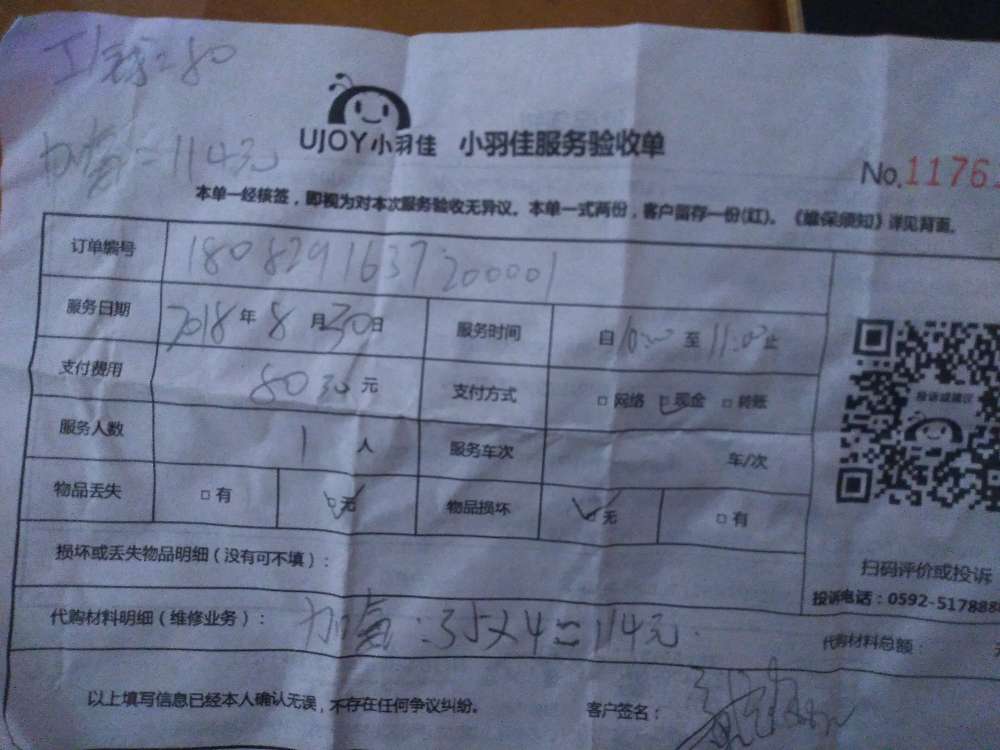 工钱=80
加氟=114元
UJOY小羽佳 小羽佳服务验收单
No.1176
本单一经核签，即视为对本次服务验收无异议。本单一式两份，客户留存一份(红)。《维保须知》详见背面。
订单编号 1808291637200001
服务日期 2018年8月30日 服务时间 自10:00至11:00止
支付费用 80元 支付方式 □网络 □现金 □转账
服务人数 1人 服务车次 车/次
物品丢失 □有 □无 物品损坏 □无 □有
投诉或建议
损坏或丢失物品明细（没有可不填）：
扫码评价或投诉
投诉电话：0592-517888
代购材料明细（维修业务）： 加氟：35×4=114元
代购材料总额：
以上填写信息已经本人确认无误，不存在任何争议纠纷。 客户签名：